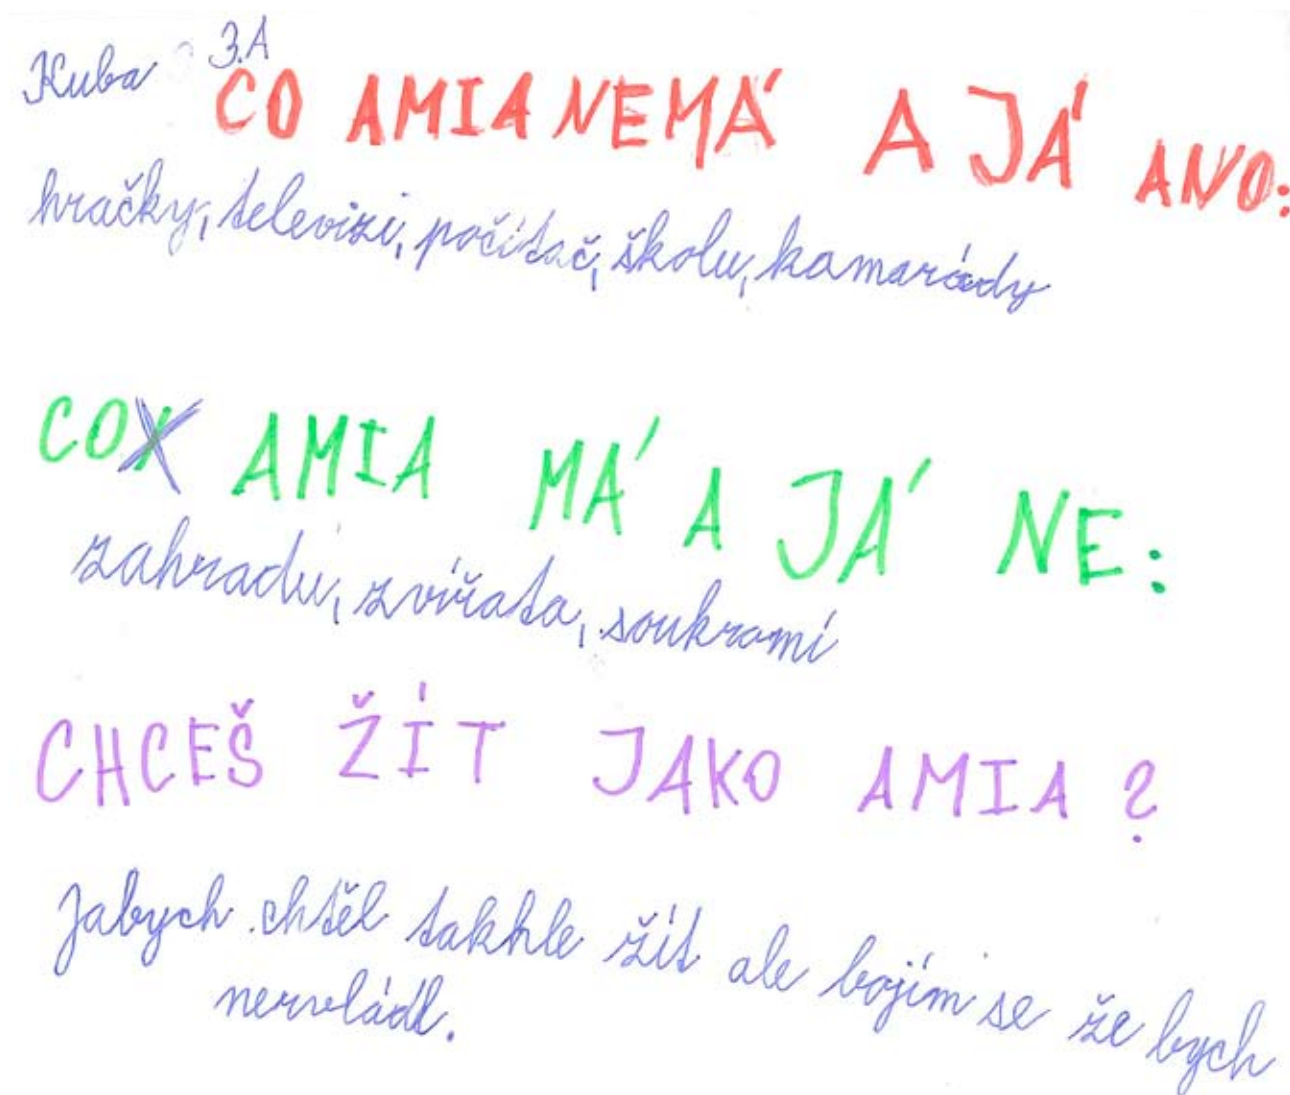 Kuba 3.A
CO AMIA NEMÁ A JÁ ANO:
hračky, televizi, počítač, školu, kamarády
CO AMIA MÁ A JÁ NE:
zahradu, zvířata, soukromí
CHCEŠ ŽÍT JAKO AMIA?
Jabych chtěl takhle žít ale bojím se že bych
nezvládl.